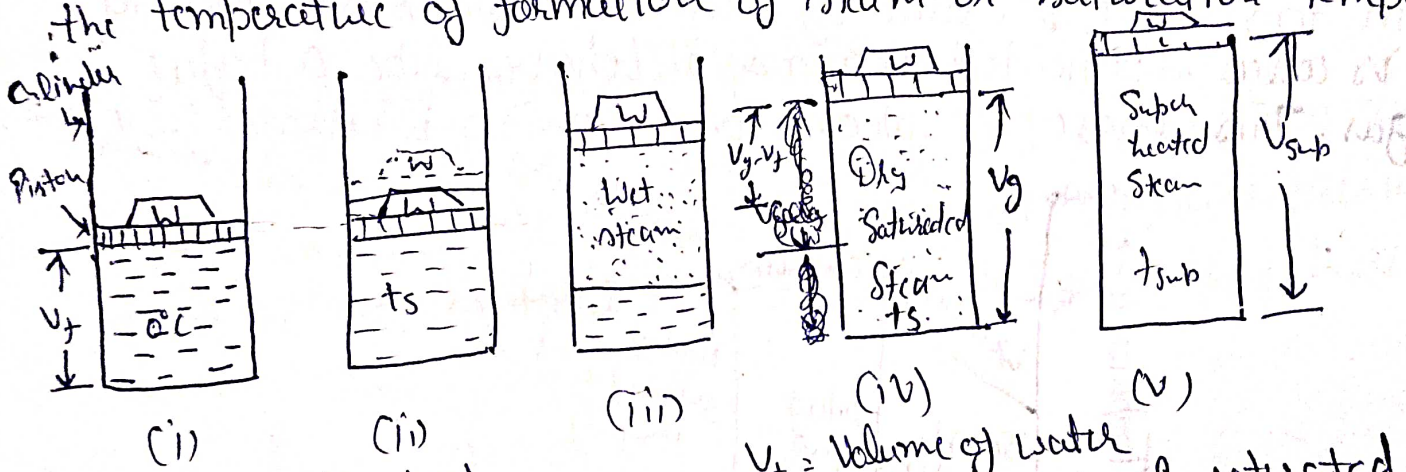 the temperature of formation of steam or saturation temp
Cylinder
Piston
W
W
W
W
W
W
Vf
0°C
ts
Wet
steam
Vg-Vf
Dry
Saturated
Steam
ts
Vg
Super
heated
Steam
tsup
Vsup
(i)
(ii)
(iii)
(iv)
(v)
Vf = Volume of water
saturated